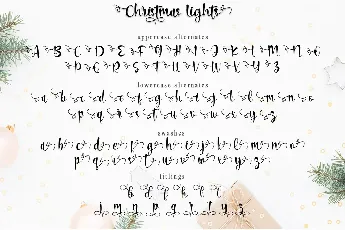 Christmas lights
uppercase alternates
A B C D E F G H I J K L M N O
P Q R S T U V W X Y Z
lowercase alternates
a b c d e f g h i j k l m n o
p q r s t u v w x y z
swashes
a b c d e f g h i j k l m n o
p q r s t u v w x y z
titlings
b d f h k l
j m n p g r v y z